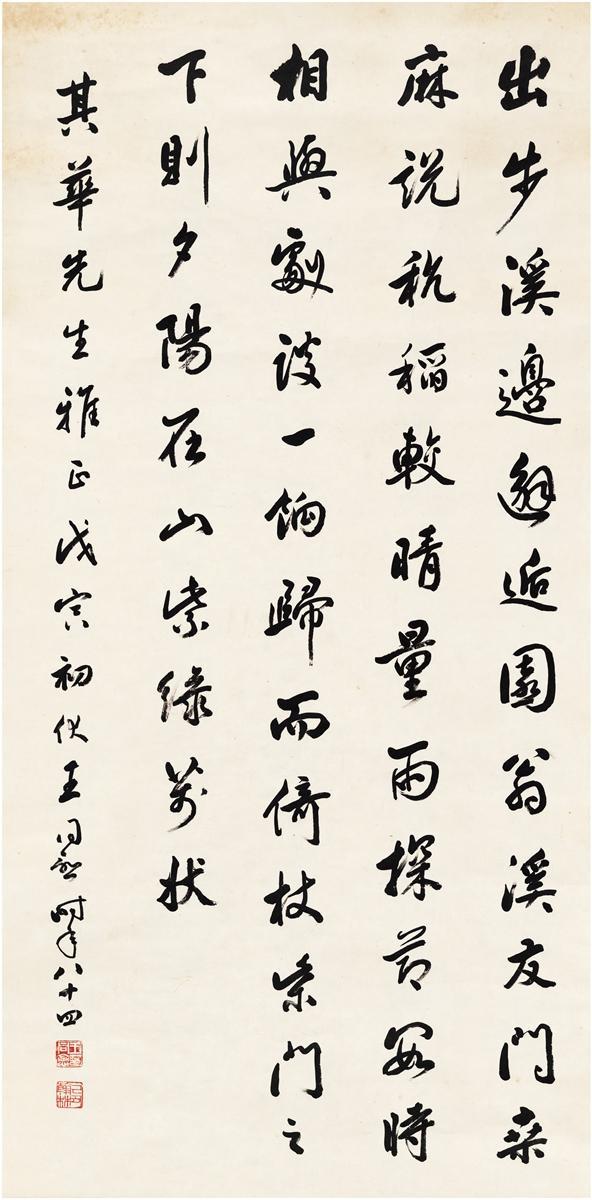 出步溪邊邂逅園翁溪友問桑
麻說秔稻較晴量雨探節數時
相與劇談一餉歸而倚杖柴門之
下則夕陽在山紫綠萬狀
其華先生雅正戊寅初伏王同愈時年八十四
己丑翰林